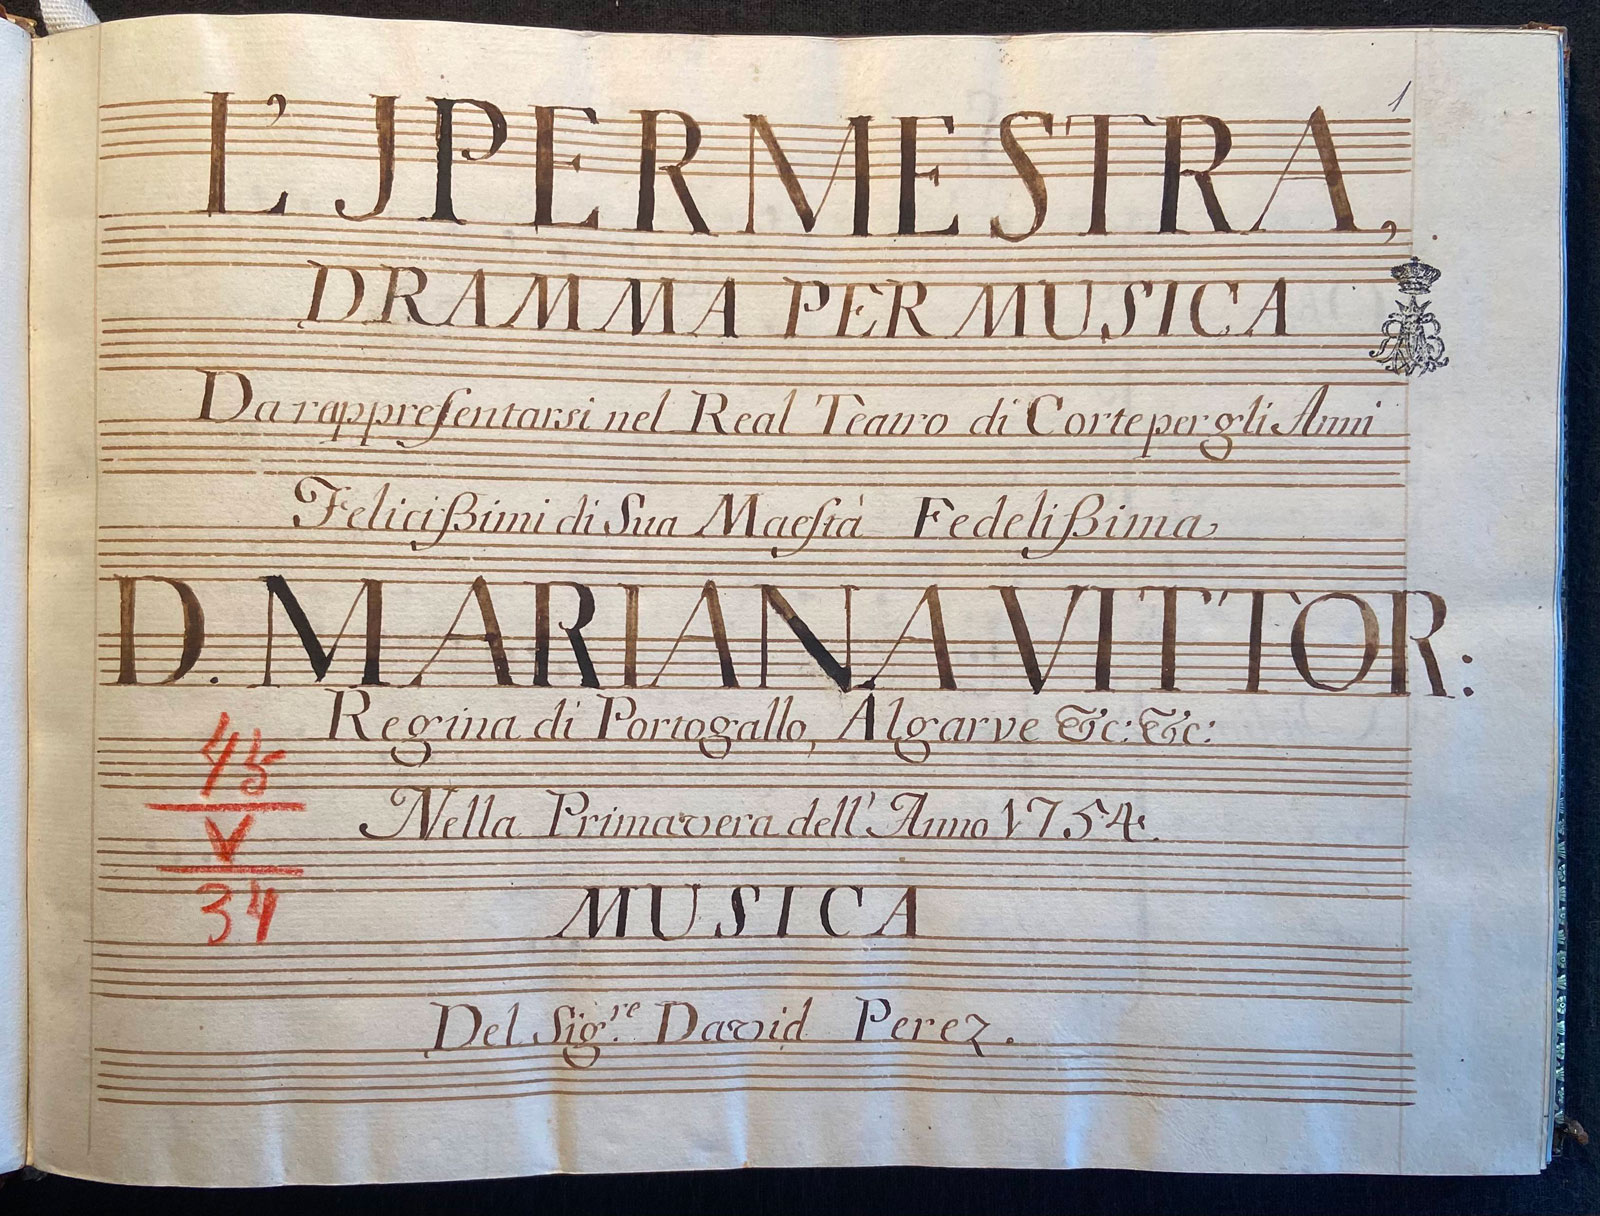 1
L'JPERMESTRA,
DRAMMA PER MUSICA
Da rappreſentarsi nel Real Teatro di Corte per gli Anni
Feliciſsimi di Sua Maeſtà Fedeliſsima
D. MARIANA VITTOR:
Regina di Portogallo, Algarve &c: &c:
Nella Primavera dell' Anno 1754.
45
V
34
MUSICA
Del Sig.re David Perez.